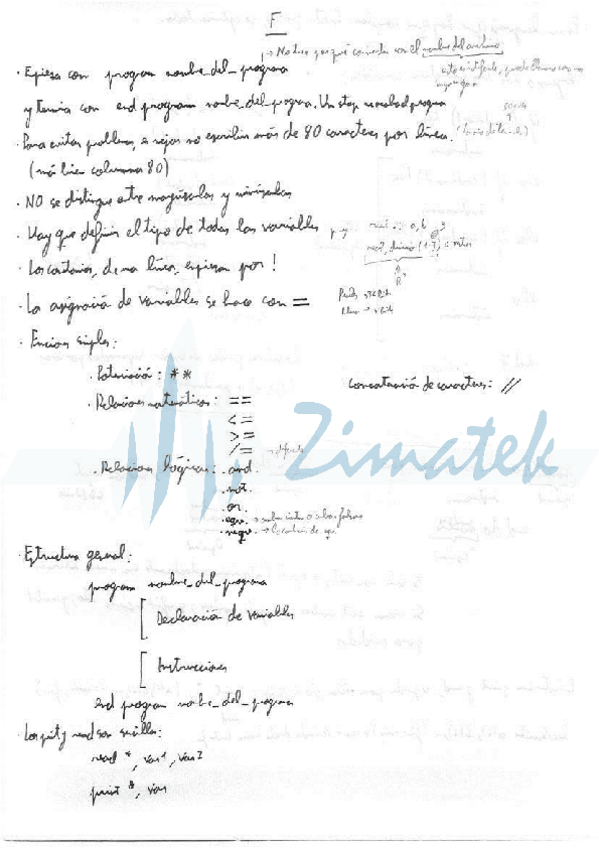 F
→ No tiene por qué coincidir con el nombre del archivo
· Empieza con program nombre_del_programa
y termina con end program nombre_del_programa. Un stop
· Para evitar problemas, es mejor no escribir más de 80 caracteres por línea.
(máx columna 80)
· NO se distingue entre mayúsculas y minúsculas
· Hay que definir el tipo de todas las variables
real :: a, b
· Los comentarios, de una línea, empiezan por !
· La asignación de variables se hace con =
· Funciones simples:
· Potenciación: **
Concatenación de caracteres: //
· Relaciones matemáticas: ==
<=
>=
/=
Zimatek
· Relaciones lógicas: .and.
.not.
.or.
.eqv.
.neqv.
· Estructura general:
program nombre_del_programa
[ Declaración de variables
[ Instrucciones
end program nombre_del_programa
· Los print y read son sencillos:
read *, var1, var2
print *, var